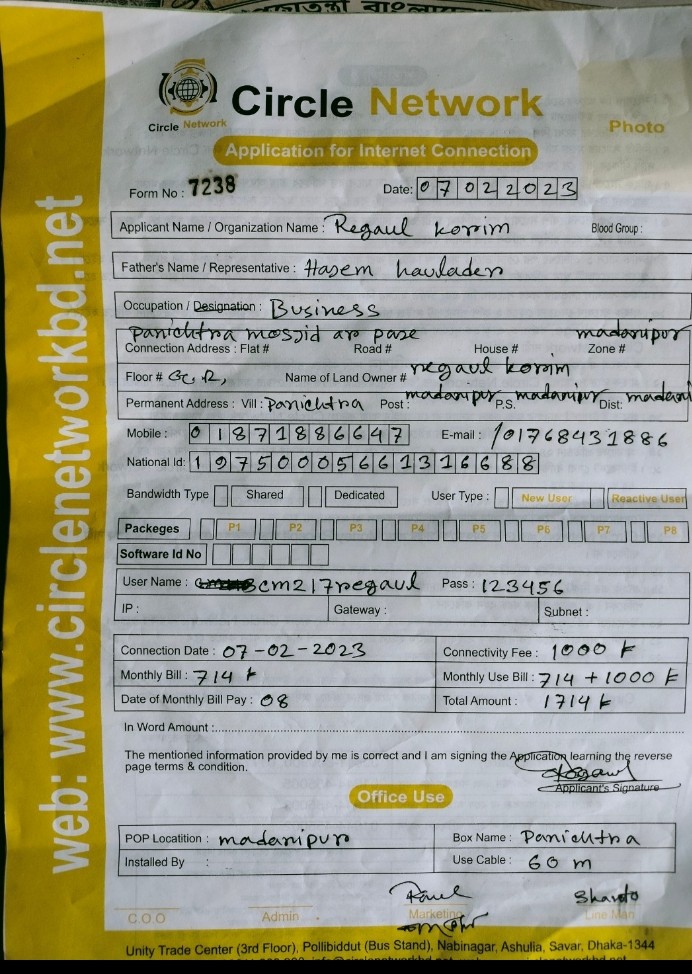 Circle Network
Circle Network
Photo
Application for Internet Connection
Form No : 7238 Date: 07022023
Applicant Name / Organization Name : Regaul korim Blood Group :
Father's Name / Representative : Hasem hawlader
Occupation / Designation : Business
Panichtra mosjid ar pase madaripur
Connection Address : Flat # Road # House # Zone #
Floor # Name of Land Owner # regaul korim
Permanent Address : Vill : Panichtra Post : madaripur P.S. madaripur Dist:
Mobile : 01871886647 E-mail : /01768431886
National Id: 19750005661316688
Bandwidth Type Shared Dedicated User Type : New User Reactive User
Packeges P1 P2 P3 P4 P5 P6 P7 P8
Software Id No
User Name : cm217regaul Pass : 123456
IP : Gateway : Subnet :
Connection Date : 07-02-2023 Connectivity Fee : 1000 ৳
Monthly Bill : 714 ৳ Monthly Use Bill : 714 + 1000 ৳
Date of Monthly Bill Pay : 08 Total Amount : 1714 ৳
In Word Amount :
The mentioned information provided by me is correct and I am signing the Application learning the reverse
page terms & condition.
Applicant's Signature
Office Use
POP Locatition : madaripur Box Name : Panichtra
Installed By : Use Cable : 60 m
Sharto
C O O Admin Marketing Line Man
Unity Trade Center (3rd Floor), Pollibiddut (Bus Stand), Nabinagar, Ashulia, Savar, Dhaka-1344
web: www.circlenetworkbd.net